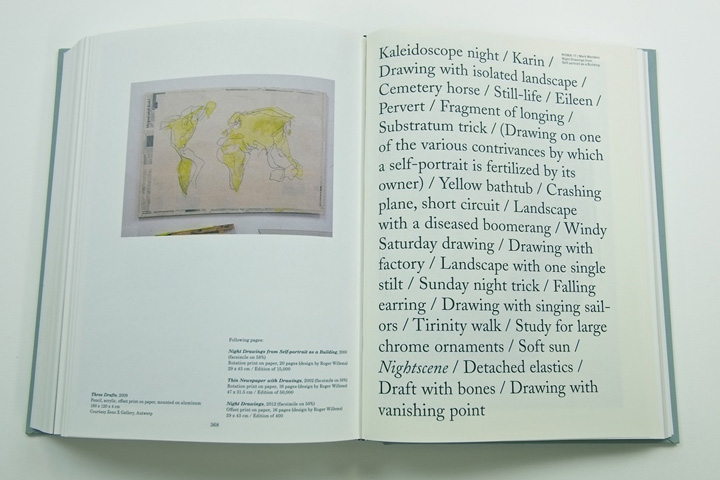 Three Drafts, 2009
Pencil, acrylic, offset print on paper, mounted on aluminum
180 x 120 x 4 cm
Courtesy Zeno X Gallery, Antwerp
Following pages:
Night Drawings from Self-portrait as a Building, 200
(facsimile on 50%)
Rotation print on paper, 20 pages (design by Roger Willems)
29 x 43 cm / Edition of 15,000
This Newspaper with Drawings, (facsimile on 50%)
Rotation print on paper, 36 pages (design by Roger Willems)
47 x 31.5 cm / Edition of 50,000
Night Drawings, 2012 (facsimile on 50%)
Offset print on paper, 16 pages (design by Roger Willems)
29 x 43 cm / Edition of 400
368
ROMA / Mark Manders
Night Drawings from
Self-portrait as a Building
Kaleidoscope night / Karin /
Drawing with isolated landscape /
Cemetery horse / Still-life / Eileen /
Pervert / Fragment of longing /
Substratum trick / (Drawing on one
of the various contrivances by which
a self-portrait is fertilized by its
owner) / Yellow bathtub / Crashing
plane, short circuit / Landscape
with a diseased boomerang / Windy
Saturday drawing / Drawing with
factory / Landscape with one single
stilt / Sunday night trick / Falling
earring / Drawing with singing sail-
ors / Tirinity walk / Study for large
chrome ornaments / Soft sun /
Nightscene / Detached elastics /
Draft with bones / Drawing with
vanishing point